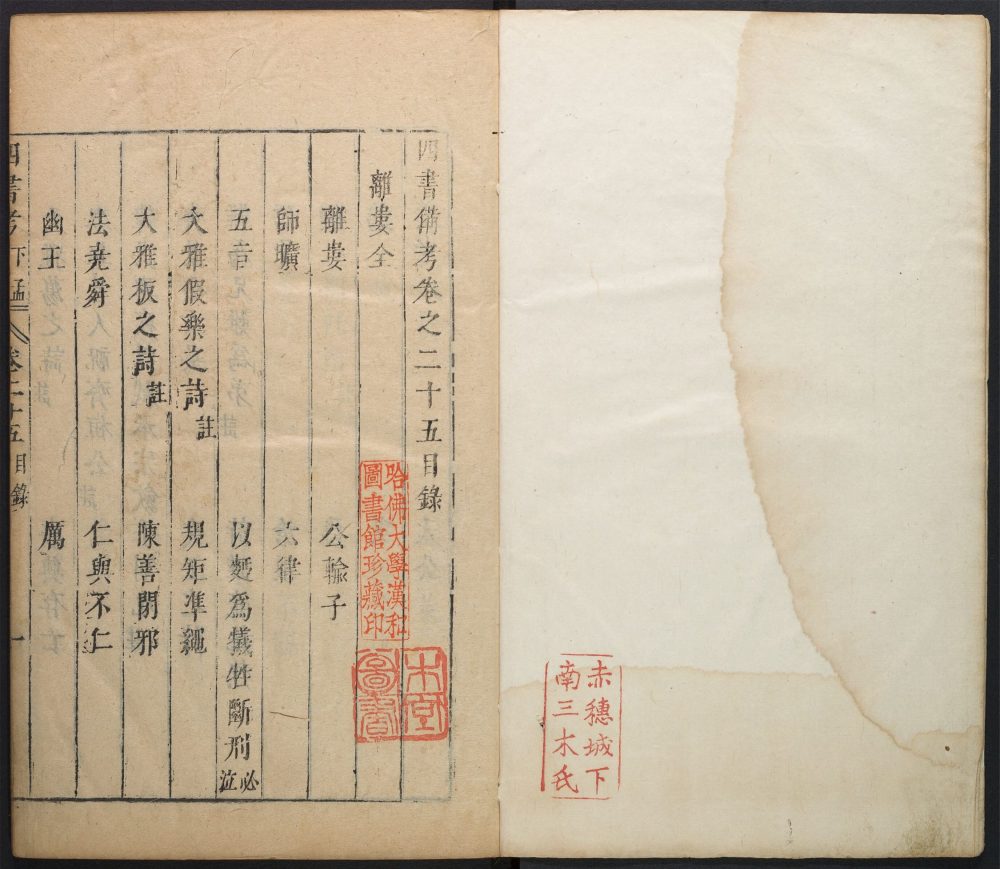 赤穗城下
南三木氏
四書備考卷之二十五目錄
離婁全
離婁 公輸子
師曠 六律
五音 以麪爲犧牲斷刑必泣
大雅假樂之詩註 規矩準繩
大雅板之詩註 陳善閉邪
法堯舜 仁與不仁
幽王 厲
四書考 下孟 卷二十五目錄 一
哈佛大學漢和
圖書館珍藏印
圖書